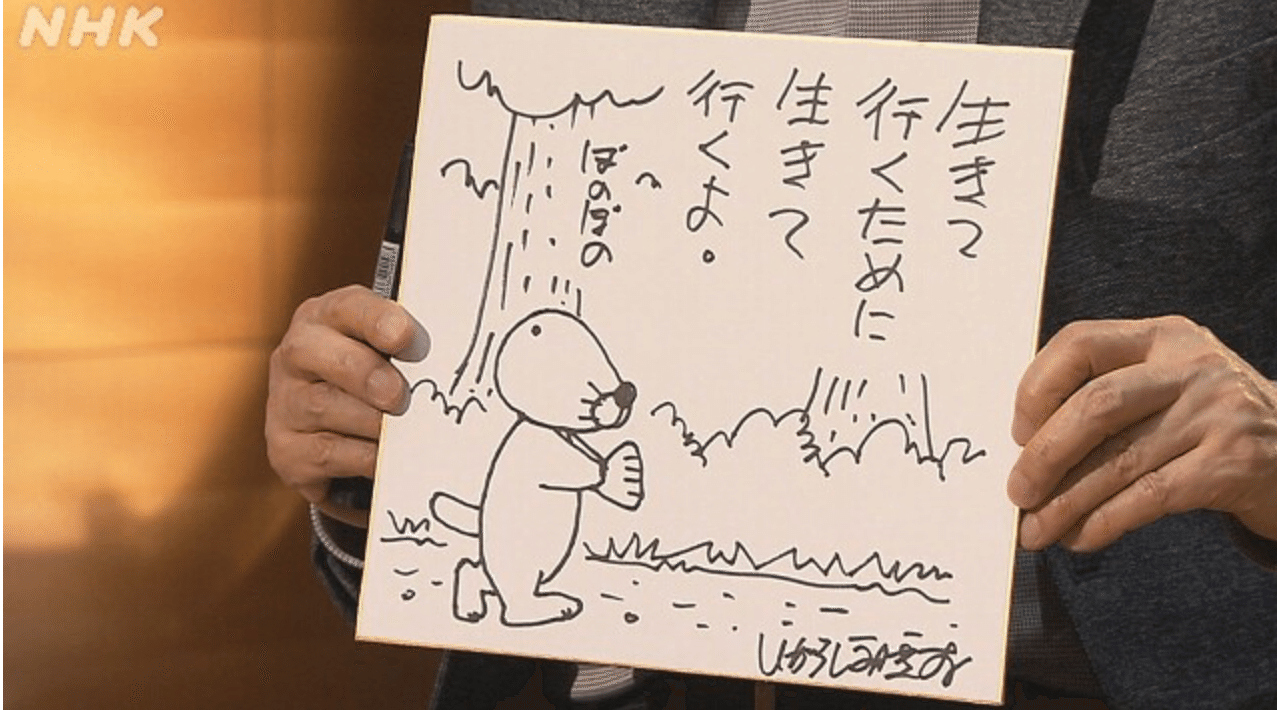 NHK
生きて
行くために
生きて
行くよ。
ぼのぼの
いがらしみきお